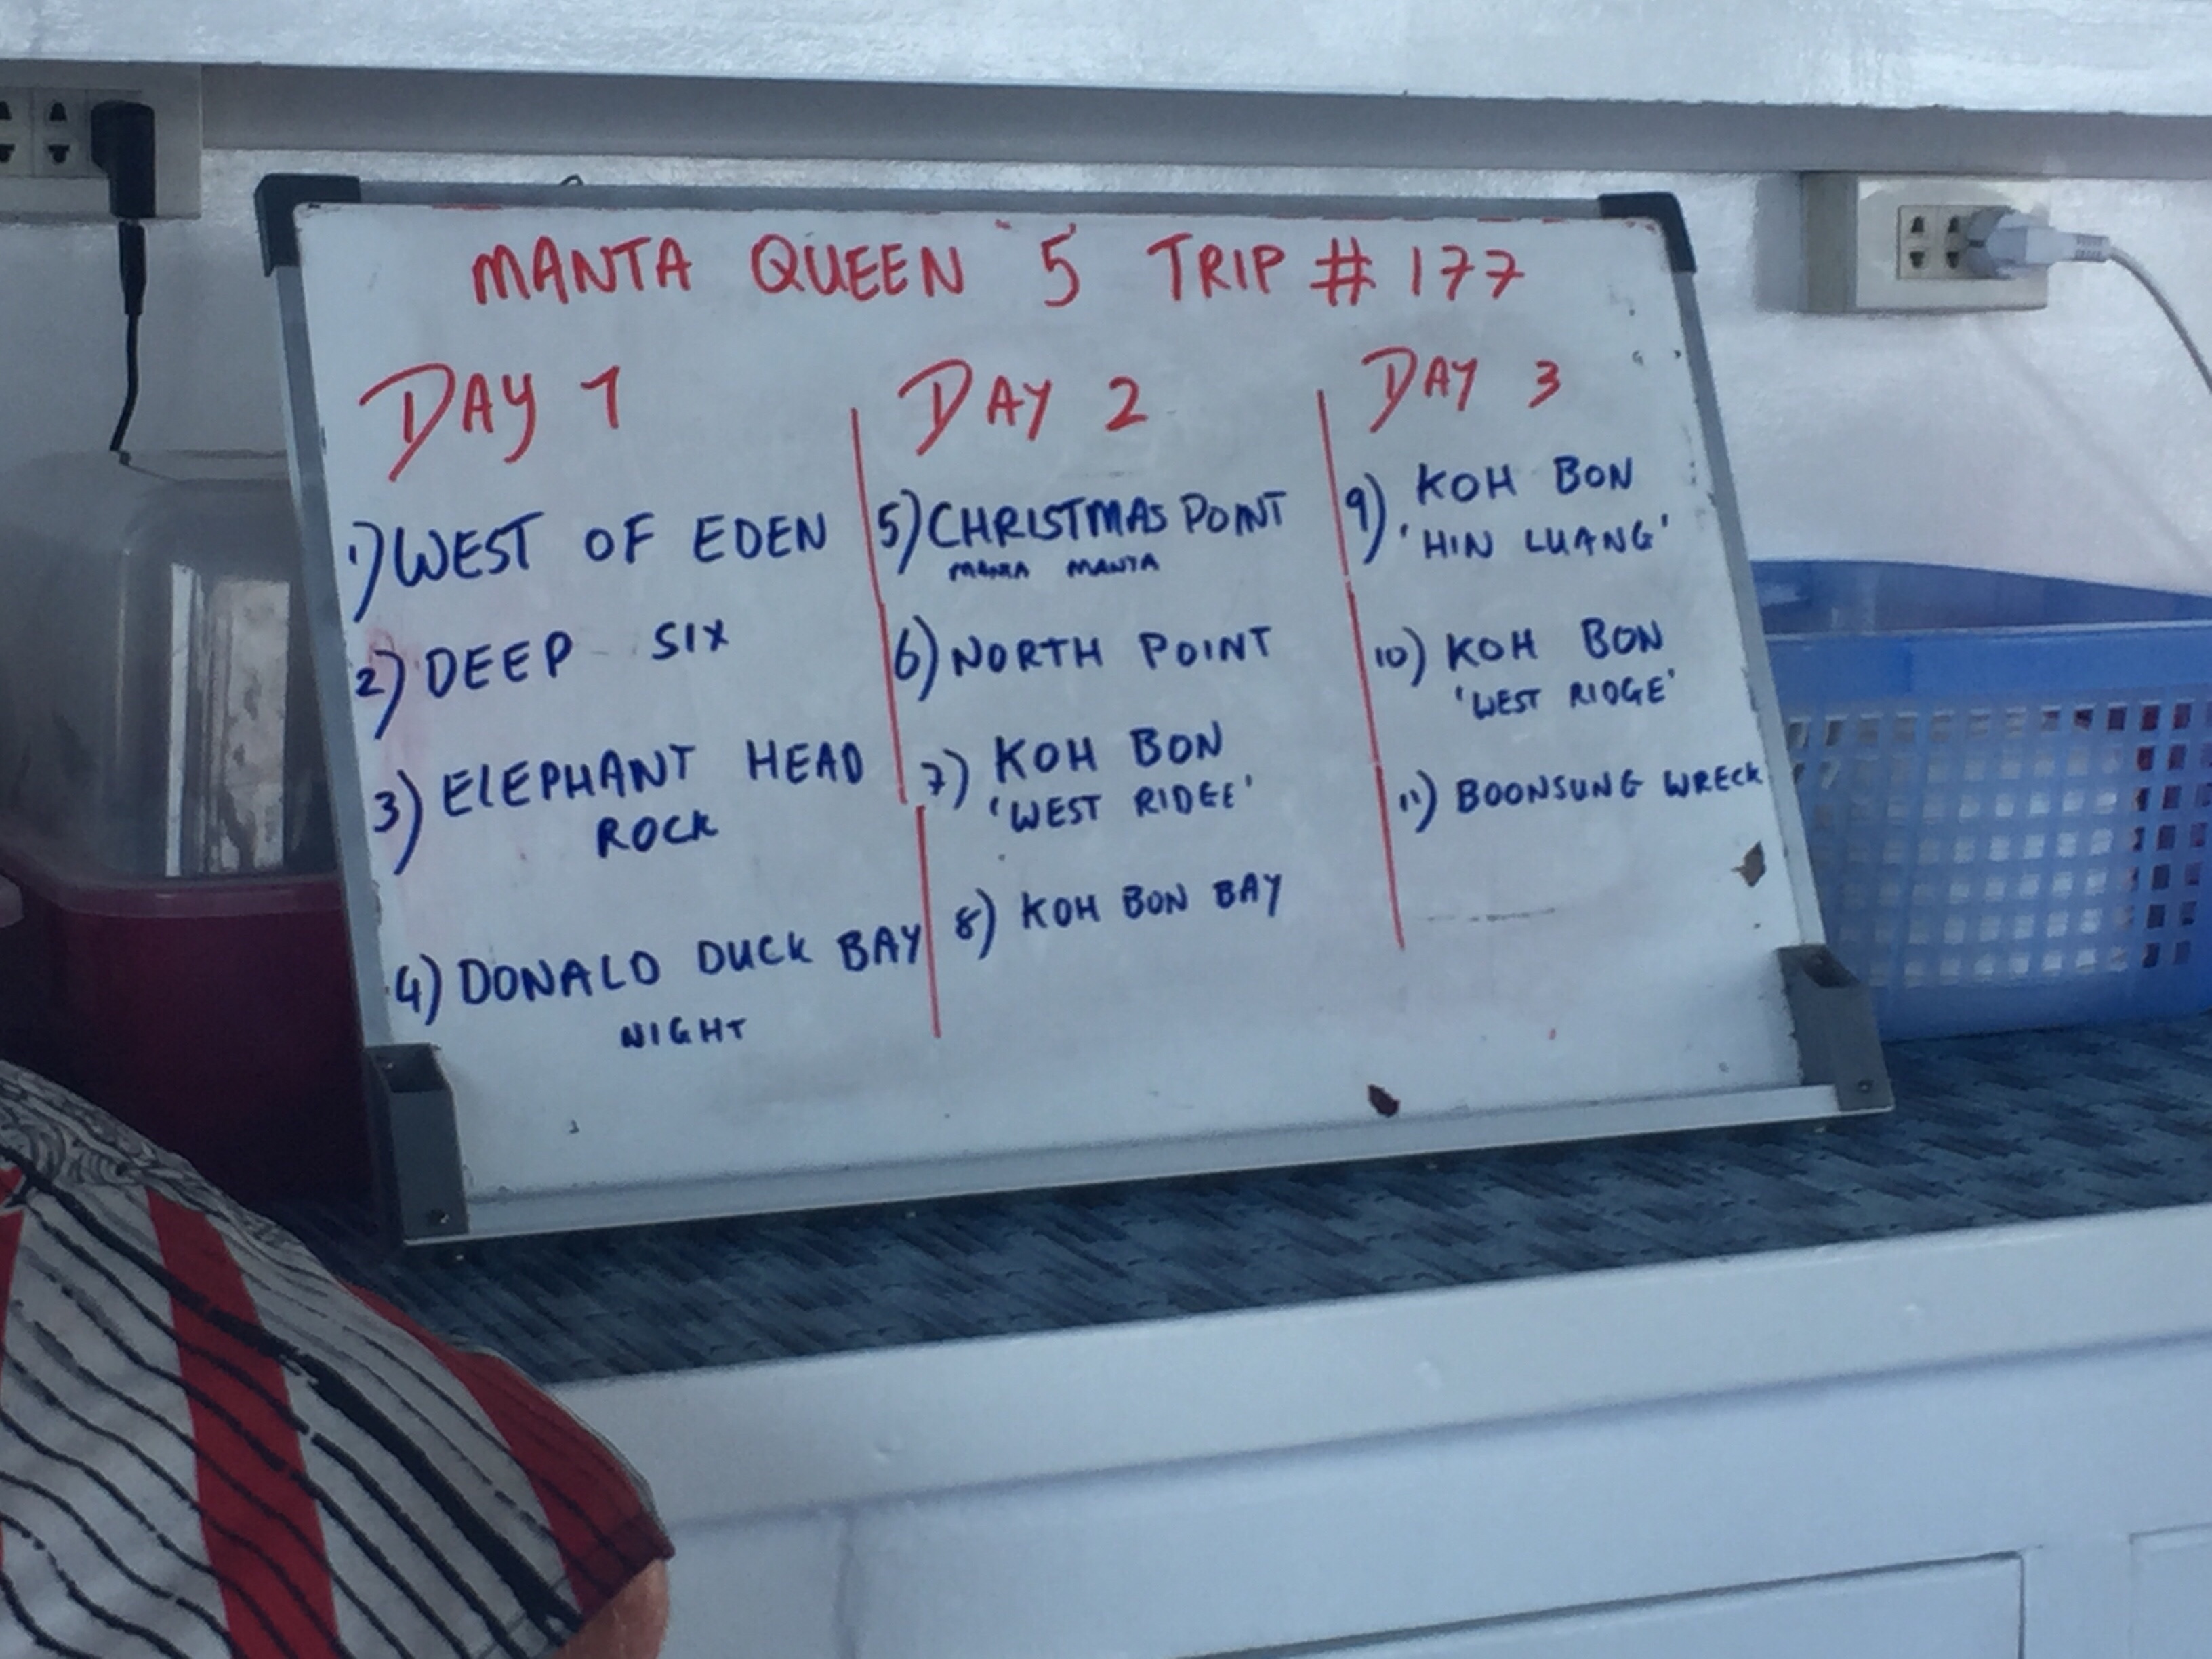 MANTA QUEEN 5 TRIP # 177
DAY 1
1) WEST OF EDEN
2) DEEP SIX
3) ELEPHANT HEAD
ROCK
4) DONALD DUCK BAY
NIGHT
DAY 2
5) CHRISTMAS POINT
MANTA MANTA
6) NORTH POINT
7) KOH BON
'WEST RIDGE'
8) KOH BON BAY
DAY 3
9) KOH BON
'HIN LUANG'
10) KOH BON
'WEST RIDGE'
11) BOONSUNG WRECK